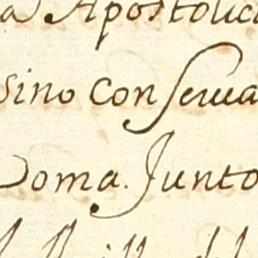 a Apostolica
sino conserua
Doma. Junto